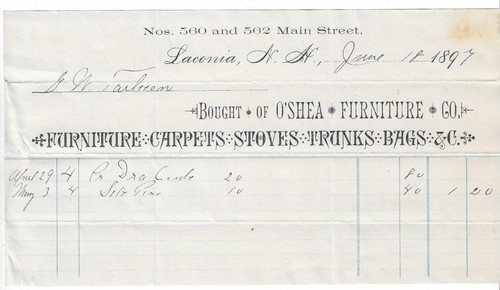 Nos. 560 and 562 Main Street.
Laconia, N. H., June 18 1897
BOUGHT OF O'SHEA FURNITURE CO.
FURNITURE CARPETS STOVES TRUNKS BAGS &C.
April 29 4 Pr 20 80
May 3 4 Sets Pins 10 40 1 20